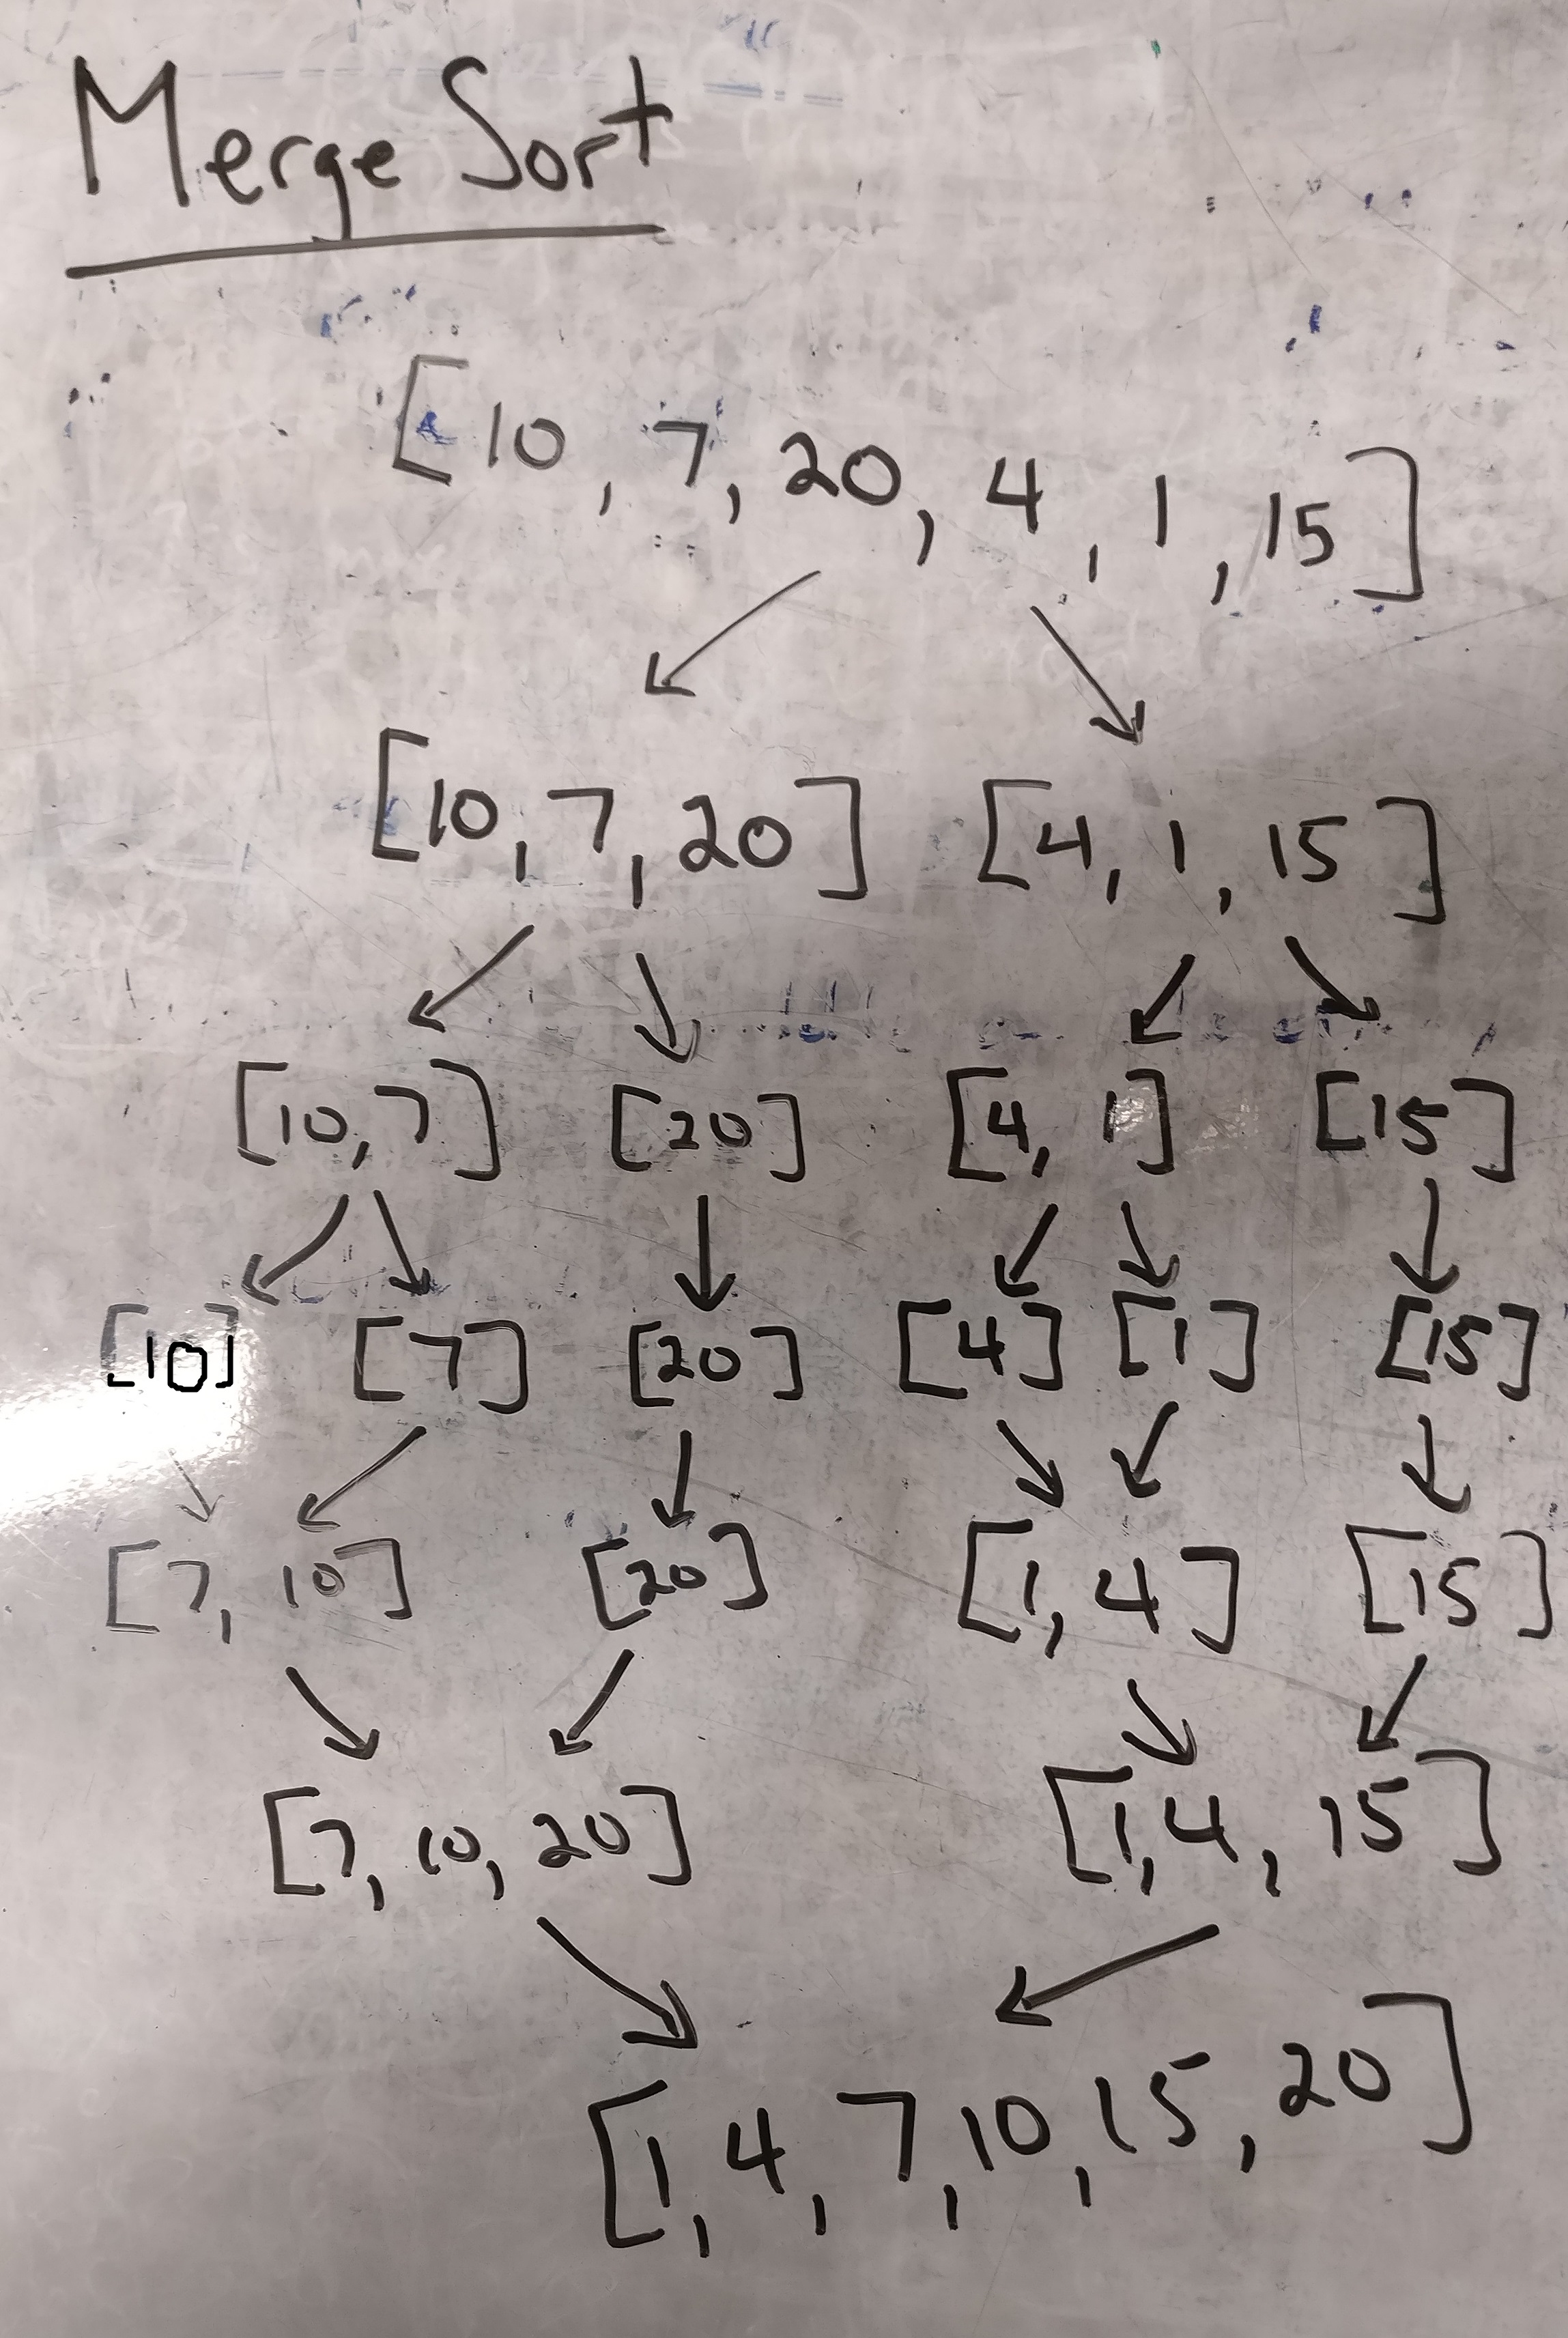 Merge Sort
[10, 7, 20, 4, 1, 15]
[10, 7, 20] [4, 1, 15]
[10, 7] [20] [4, 1] [15]
[10] [7] [20] [4] [1] [15]
[7, 10] [20] [1, 4] [15]
[7, 10, 20] [1, 4, 15]
[1, 4, 7, 10, 15, 20]